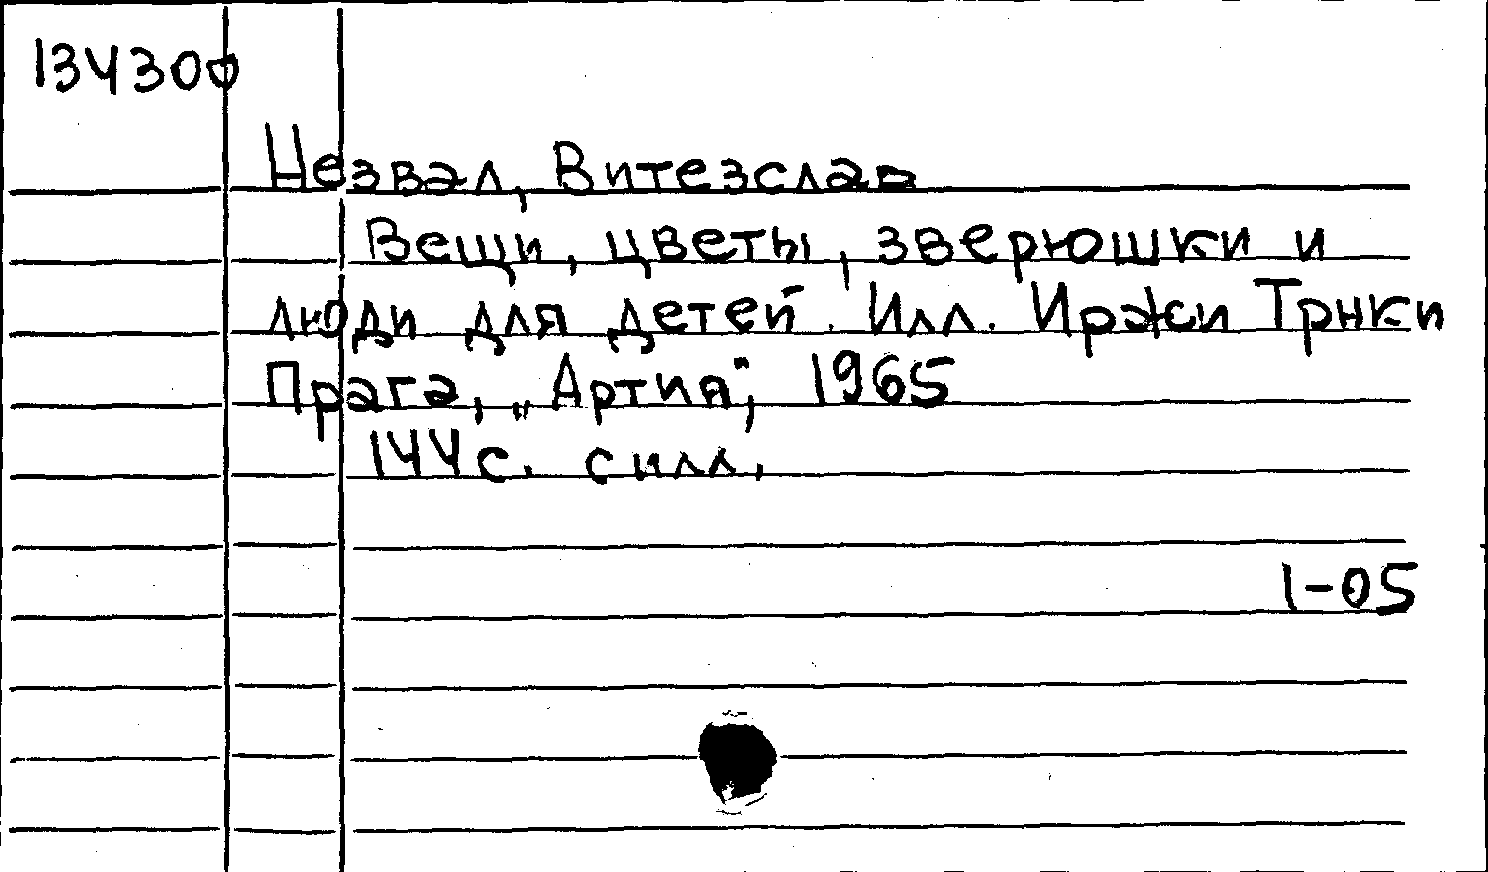 134300
Незвал, Витезслав
Вещи, цветы, зверюшки и
люди для детей. Илл. Иржи Трнки
Прага, „Артия", 1965
144с. с илл.
1-05